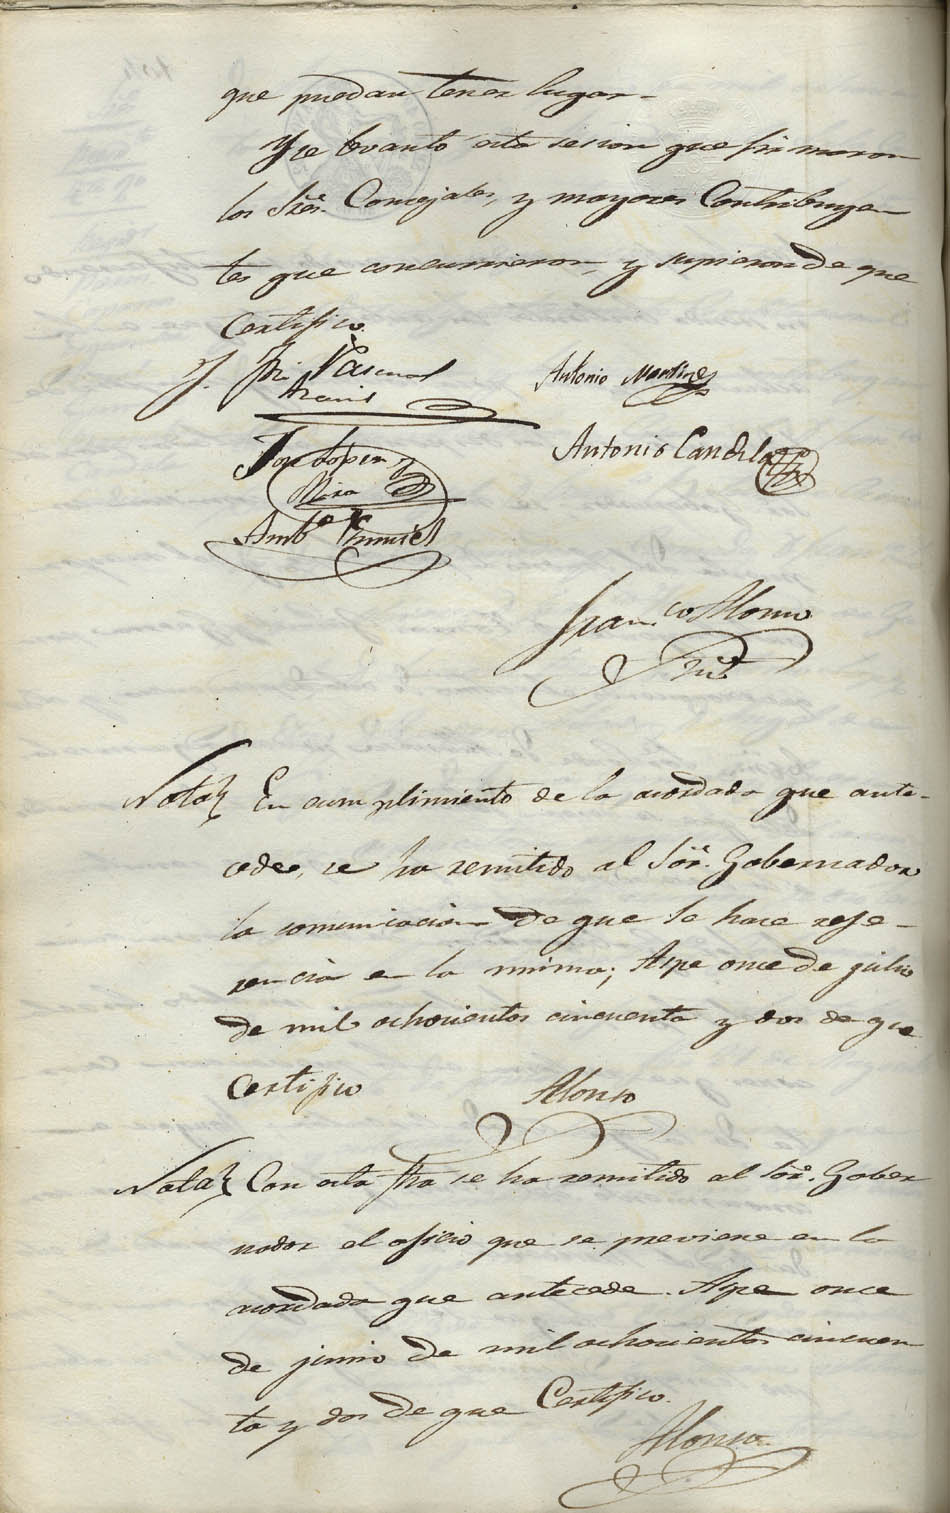 que puedan tener lugar.
Y se levantó esta sesion que firmaron
los Sres. Concejales, y mayores Contribuyen
tes que concurrieron, y supieron de que
Certifico.
Pascual
Antonio Martinez
Antonio Candela
Mira
Franco. Alonso
Srio.
Nota En cumplimiento de lo acordado que ante-
cede, se ha remitido al Sor. Gobernador
la comunicacion de que se hace refe-
rencia en la misma; Aspe once de julio
de mil ochocientos cincuenta y dos de que
Certifico Alonso
Nota Con esta fha se ha remitido al Sor. Gober
nador el oficio que se previene en lo
acordado que antecede. Aspe once
de junio de mil ochocientos cincuen
ta y dos de que Certifico.
Alonso